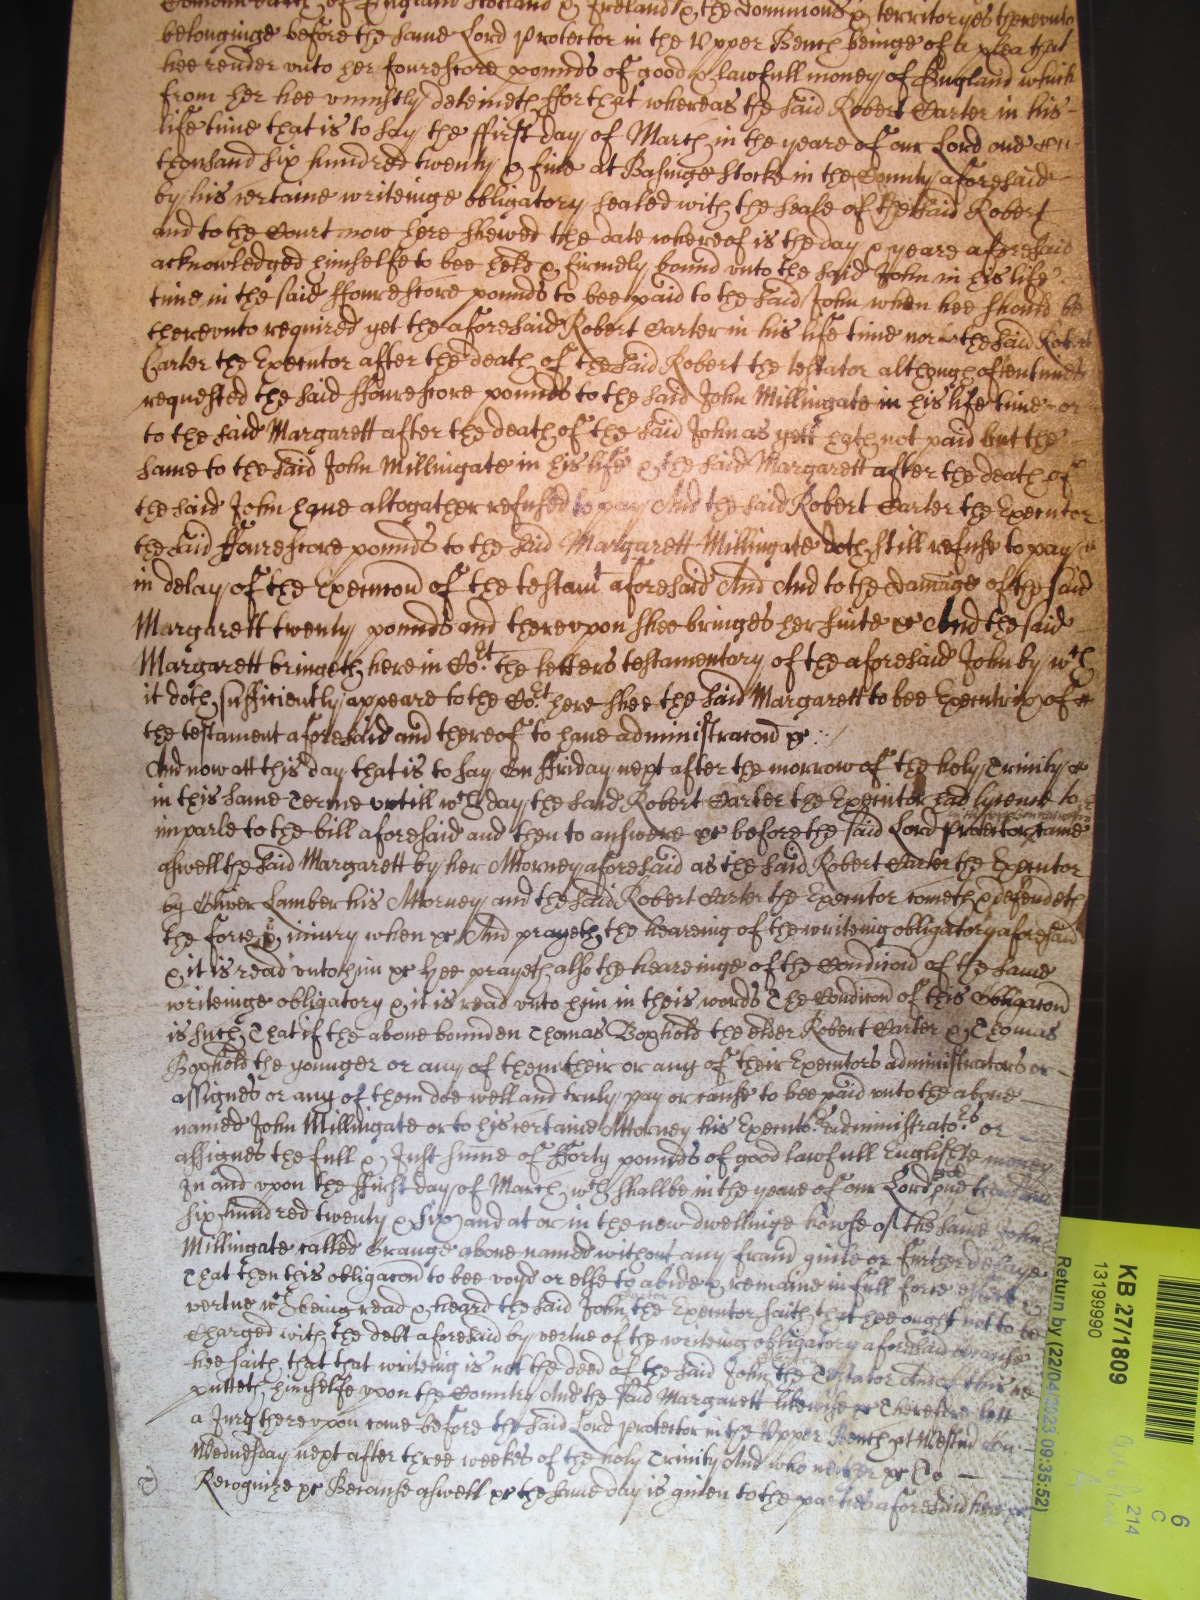 Comonwealth of England Scotland & Ireland & the dominions & territoryes therevnto
belonginge before the same Lord Protector in the Vpper Bench beinge of a plea that
hee render vnto her fourescore pounds of good & lawfull money of England which
from her hee vniustly deteineth ffor that whereas the said Robert Carter in his
life time that is to say the ffirst day of March in the yeare of our Lord one
thousand six hundred twenty & fiue at Basinge Stocke in the County aforesaid
by his certaine writeinge obligatory sealed with the seale of the said Robert
and to the Court now here shewed the date whereof is the day & yeare aforesaid
acknowledged himselfe to bee held & firmely bound vnto the said John in his life
time in the said ffourescore pounds to bee paid to the said John when hee should be
therevnto required yet the aforesaid Robert Carter in his life time nor the said Robert
Carter the Executor after the death of the said Robert the testator although oftentimes
requested the said ffourescore pounds to the said John Millingate in his life time or
to the said Margarett after the death of the said John as yett hath not paid but the
same to the said John Millingate in his life & the said Margarett after the death of
the said John haue altogather refused to pay And the said Robert Carter the Executor
the said ffourescore pounds to the said Margarett Millingate doth still refuse to pay
in delay of the Execucion of the testamt aforesaid And And to the damage of the said
Margarett twenty pounds and therevpon shee bringes her suite &c And the said
Margarett bringeth here in Cort the letters testamentory of the aforesaid John by wch
it doth sufficiently appeare to the Cort here shee the said Margarett to bee Executrix of
the testament aforesaid and thereof to haue administracon &c
And now att this day that is to say On ffriday next after the morrow of the holy Trinity
in this same Terme vntill wch day the said Robert Carter the Executor had lycence to
imparle to the bill aforesaid and then to answere &c before the said Lord Protector came
aswell the said Margarett by her Attorney aforesaid as the said Robert Carter the Executor
by Oliver Lamber his Attorney and the said Robert Carter the Executor cometh & defendeth
the force & iniury when &c And prayeth the heareing of the writeing obligatory aforesaid
& it is read vnto him &c Hee prayeth also the heareinge of the Condicon of the same
writeinge obligatory & it is read vnto him in theis words The Condicon of this Obligacon
is such That if the aboue bounden Thomas Boxhold the elder Robert Carter & Thomas
Boxhold the younger or any of them their or any of their Executors administrators or
assignes or any of them doe well and truly pay or cause to bee paid vnto the aboue
named John Millingate or to his certaine Attorney his Executrs administrators or
assignes the full & Just summe of fforty pounds of good lawfull Englishe money
In and vpon the ffirst day of March wch shallbe in the yeare of our Lord god one thousand
six hundred twenty & six and at or in the now dwellinge howse of the same John
Millingate called Grange aboue named without any fraud guile or further delaye
That then this obligacon to bee voyd or else to abide & remaine in full force effect &
vertue wch being read & heard the said John the Executor saith that hee ought not to be
Charged with the debt aforesaid by vertue of the writeing obligatory aforesaid because
hee saith that that writeing is not the deed of the said John the Testator And of this he
putteth himselfe vpon the Country And the said Margarett likewise &c Therefore lett
a Jury therevpon come before the said Lord Protector in the Vpper Bench at Westmr on
Wednesday next after three weekes of the holy Trinity And who neither &c To
Recognize &c Because aswell &c the same day is giuen to the parties aforesaid here &c
KB 27/1809
13199990
Return by (22/04/2023 09:35:52)
6
C
214